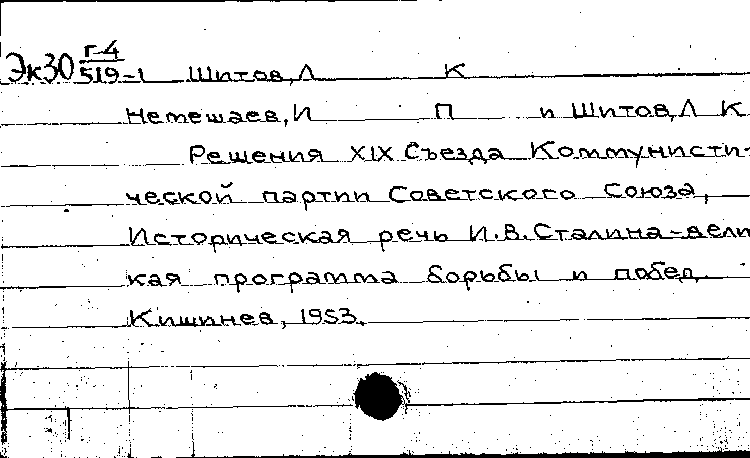 Эк30 Г-4
519-1 Шитов, Л К
Немешаев, И П и Шитов, Л К
Решения XIX Съезда Коммунисти-
ческой партии Советского Союза,
Историческая речь И.В.Сталина-вели
кая программа борьбы и побед.
Кишинев, 1953.